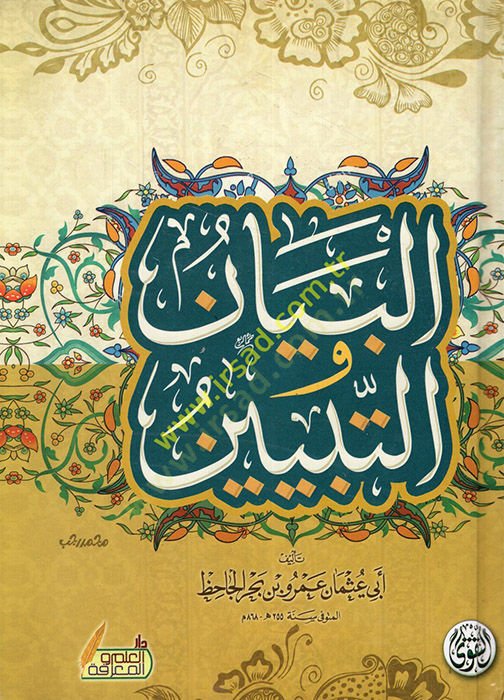 البَيَانُ
و
التَّبيين
www.irsad.com.tr
تأليف
أبي عُثمان عَمرو بن بَحر الجَاحِظ
المتوفى سنة ٢٥٥ هـ - ٨٦٨ م
دار
العلم و
المعرفة
التقوى